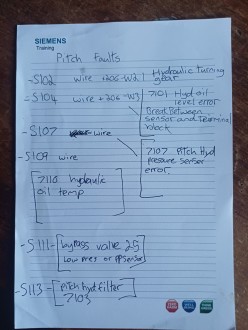 SIEMENS
Training
Pitch Faults
-S102 wire +206-W2.1 Hydraulic turning gear
-S104 wire +206-W3 7101 Hyd oil level error
Break Between sensor and Terminal block
-S107 wire
7107 Pitch Hyd pressure sensor error.
-S109 wire
7110 hydraulic
oil temp
-S111- bypass valve 25
Low pres or
-S113- pitch hyd filter
7103